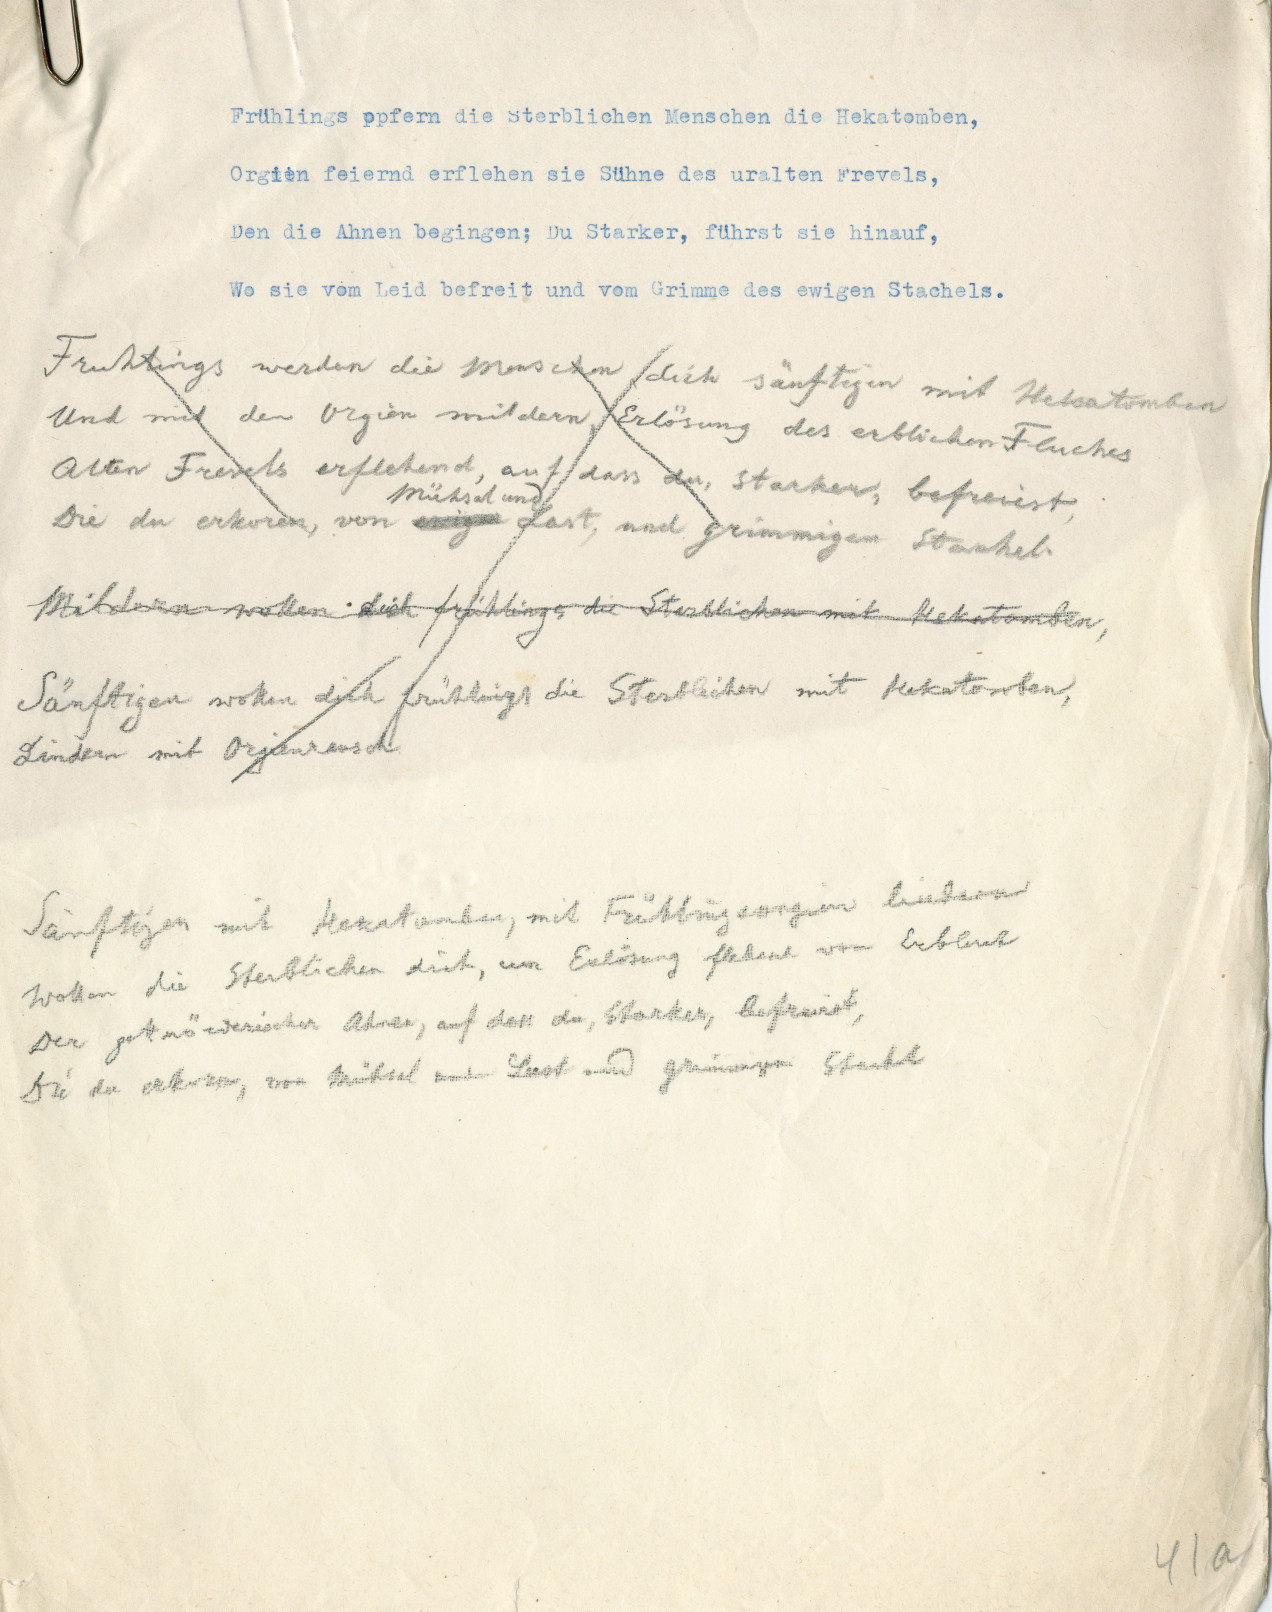 Frühlings ppfern die Sterblichen Menschen die Hekatomben,
Orgien feiernd erflehen sie Sühne des uralten Frevels,
Den die Ahnen begingen; Du Starker, führst sie hinauf,
Wo sie vom Leid befreit und vom Grimme des ewigen Stachels.
Fruhlings werden die Menschen dich sänftigen mit Hekatomben
Und mit den Orgien mildern, Erlösung des erblichen Fluches
Alten Frevels erflehend, auf dass du, Starker, befreiest,
Mühsal und
Die du erkoren, von ewigen Last, und grimmigen Stachel.
Mildern wollen dich frühlings die Sterblichen mit Hekatomben,
Sänftigen wollen dich frühlings die Sterblichen mit Hekatomben,
Lindern mit Orjienrausch
Sänftigen mit Hekatomben, mit Frühlingsorgien lindern
Wollen die Sterblichen dich, um Erlösung flehend von
Der Ahnen, auf dass du, Starker, befreist,
Die du erkoren, von Mühsal und Last und grimmigen Stachel
41a